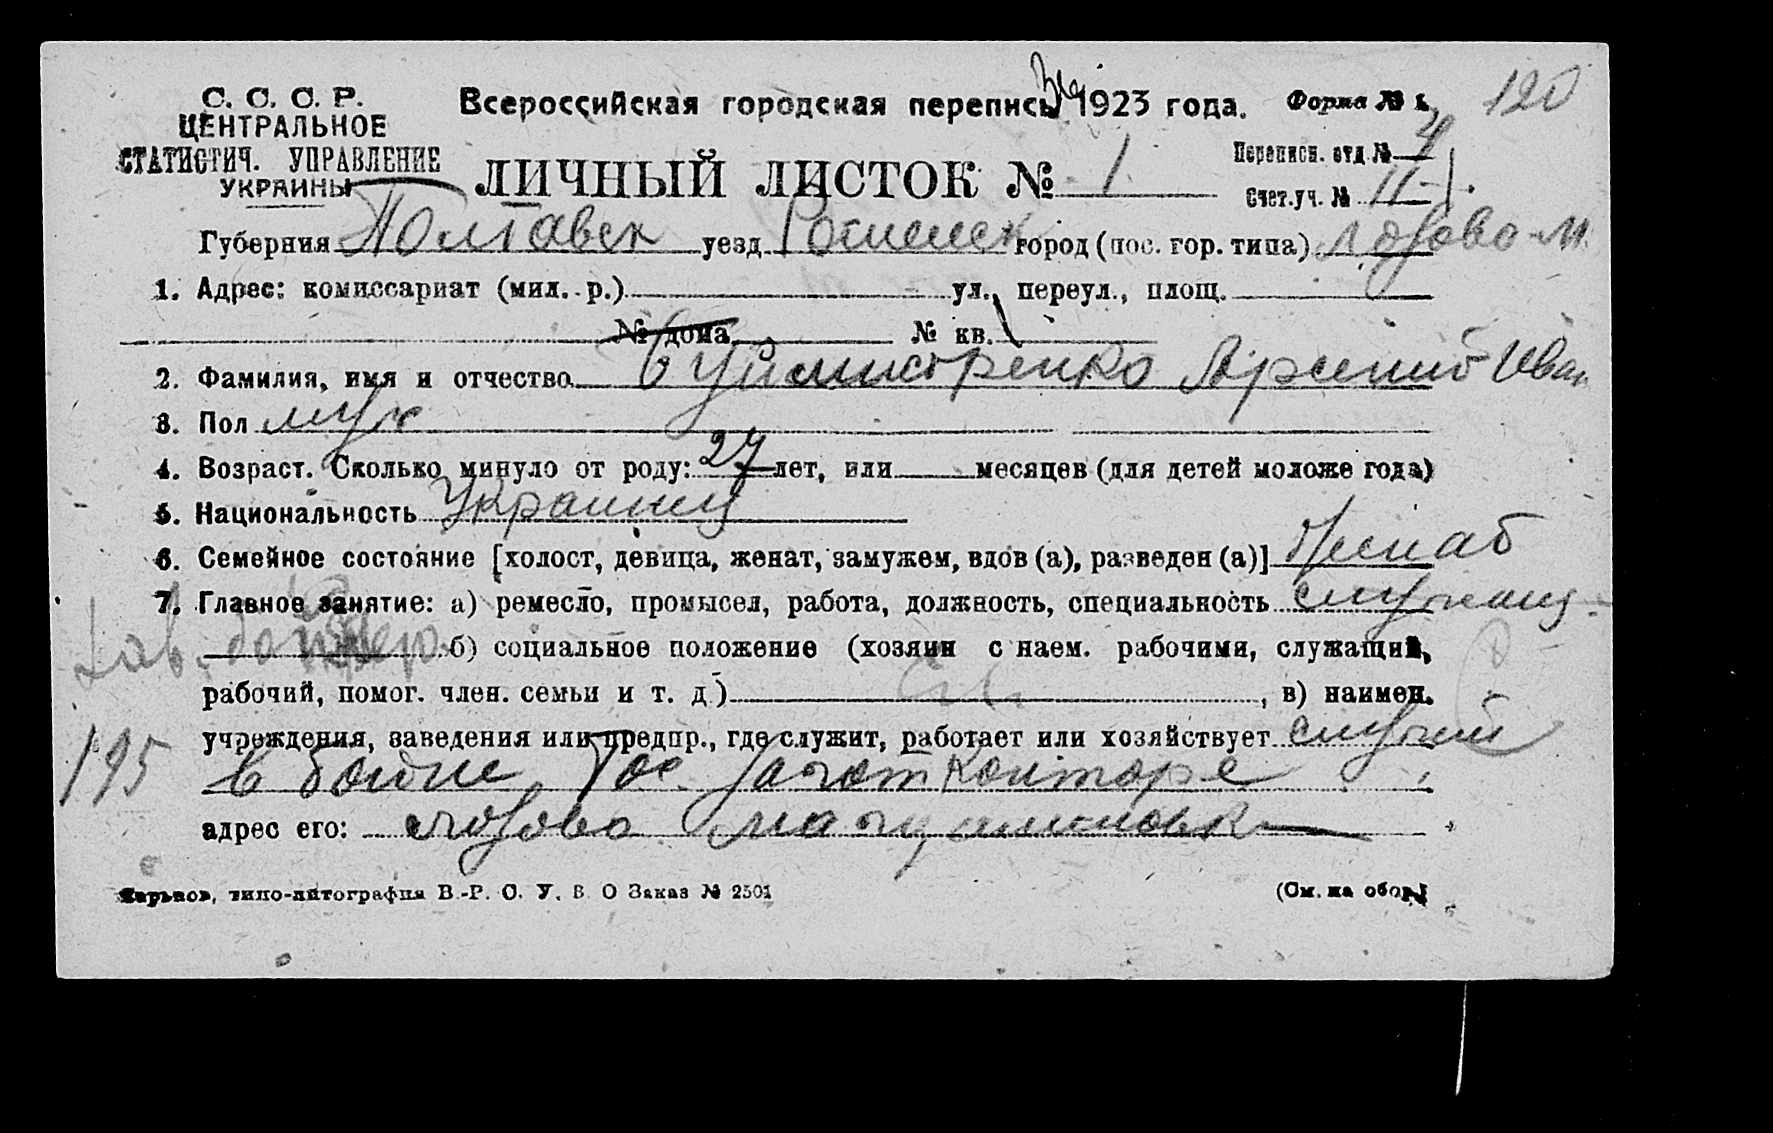 С. С. С. Р.
ЦЕНТРАЛЬНОЕ
СТАТИСТИЧ. УПРАВЛЕНИЕ
УКРАИНЫ
Всероссийская городская перепись 1923 года.
Форма № 1.
120
ЛИЧНЫЙ ЛИСТОК № 1
Переписн. отд. № 4
Счет.уч. № II-1.
Губерния Полтавск уезд Роменск город (пос. гор. типа) Лозово-М.
1. Адрес: комиссариат (мил. р.) ул., переул., площ.
№ дома № кв.
2. Фамилия, имя и отчество Арсений Иван
3. Пол муж
4. Возраст. Сколько минуло от роду: 27 лет, или месяцев (для детей моложе года)
5. Национальность Украинец
6. Семейное состояние [холост, девица, женат, замужем, вдов (а), разведен (а)] женат
7. Главное занятие: а) ремесло, промысел, работа, должность, специальность служащ.
б) социальное положение (хозяин с наем. рабочими, служащий,
рабочий, помог. член. семьи и т. д.) , в) наимен.
учреждения, заведения или предпр., где служит, работает или хозяйствует служит
195
в бойне Гос Заготконторе
адрес его: Лозово
Харьков, типо-литография В.-Р. С. У. В. О Заказ № 2501
(См. на обор.)